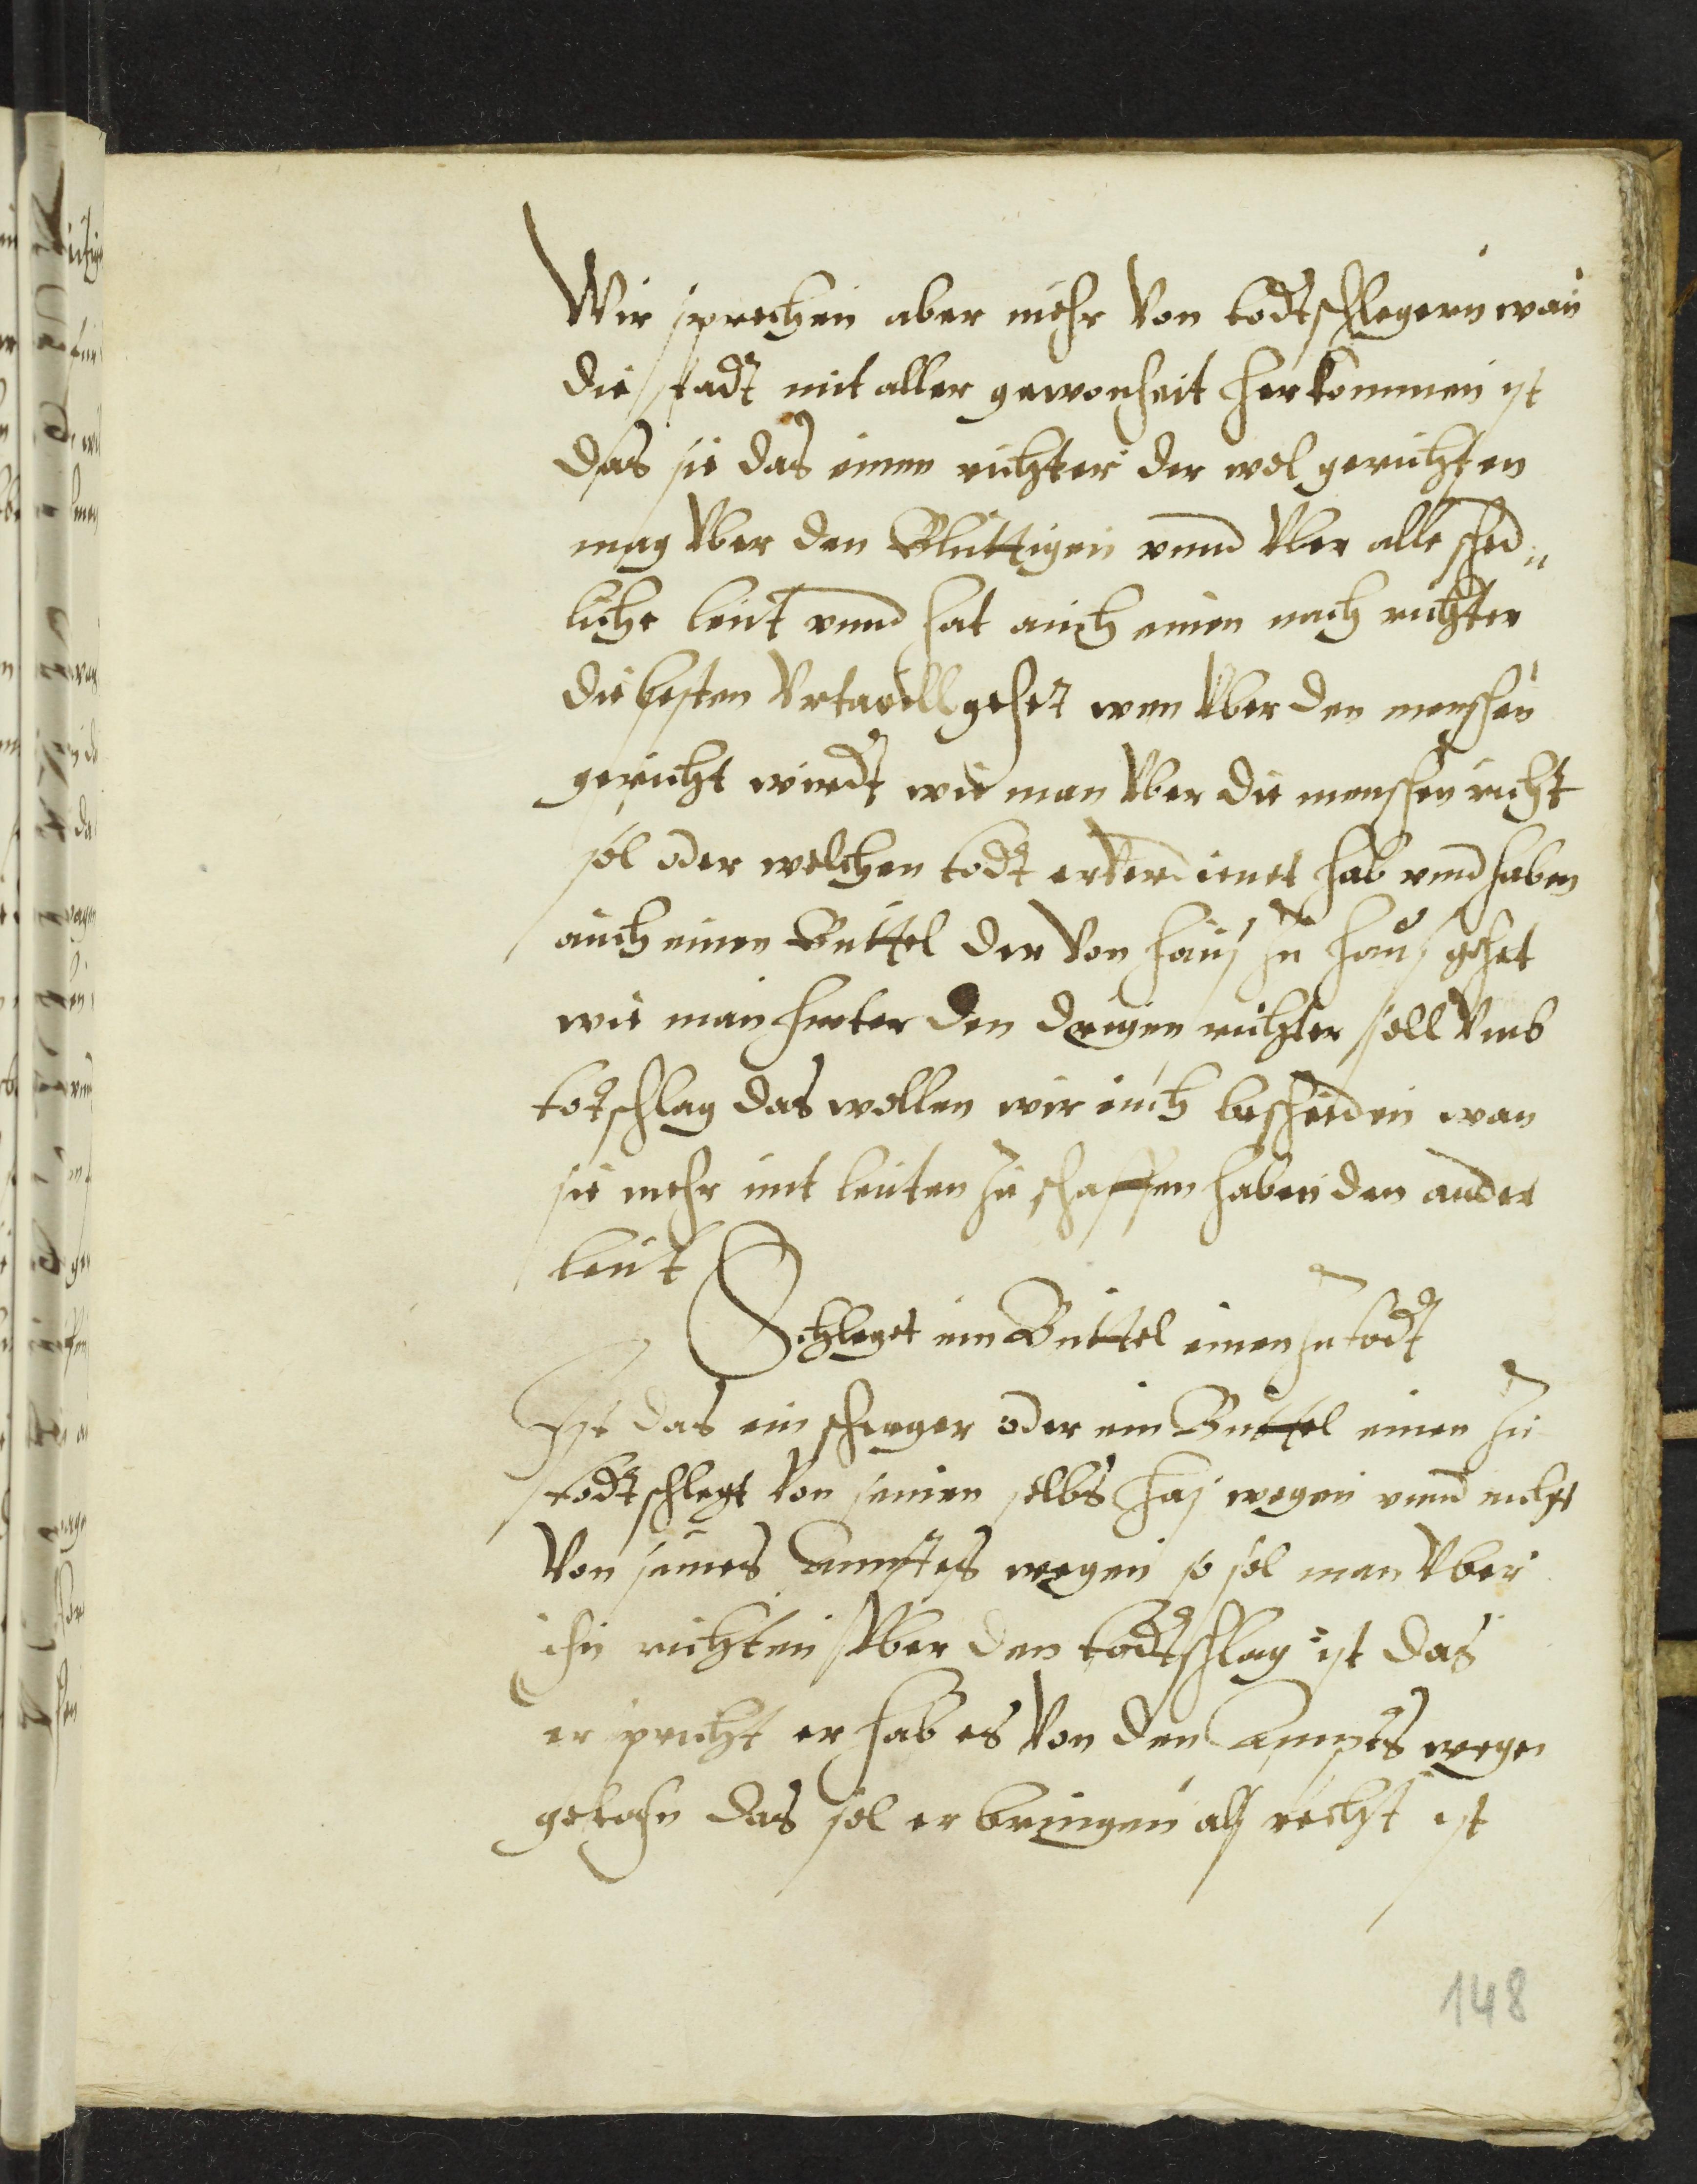 Wir sprechen aber mehr Von todtschlegern wan
die stadt mit aller gewonheit herkommen ist
das sie das einen richter der wol gerichten
mag Vber den Bluttigen vnnd Vber alle sched„
liche leut vnnd hat auch einen nach richter
die besten Vrtaeill gehet wen Vber den menschen
gericht wirdt wie man Vber die menschen richt
sol oder welchen todt er Verdienet hab vnnd haben
auch einen Buttel der Von haus zu haus gehet
wie man hinter den richter soll Vmb
totschlag das wollen wir euch bescheiden wan
sie mehr mit leuten zu schaffen haben den ander
leut
Schleget ein Buttel einen zu todt
Ist das ein scherger oder ein Buttel einen zu
todt schlegt Von seinen selbs has wegen vnnd nicht
Von seines ampts wegen so sol man Vber
ihn richten Vber den todtschlag ist das
er spricht er hab es Von den ampts wegen
getohn das sol er bringen als recht ist
148